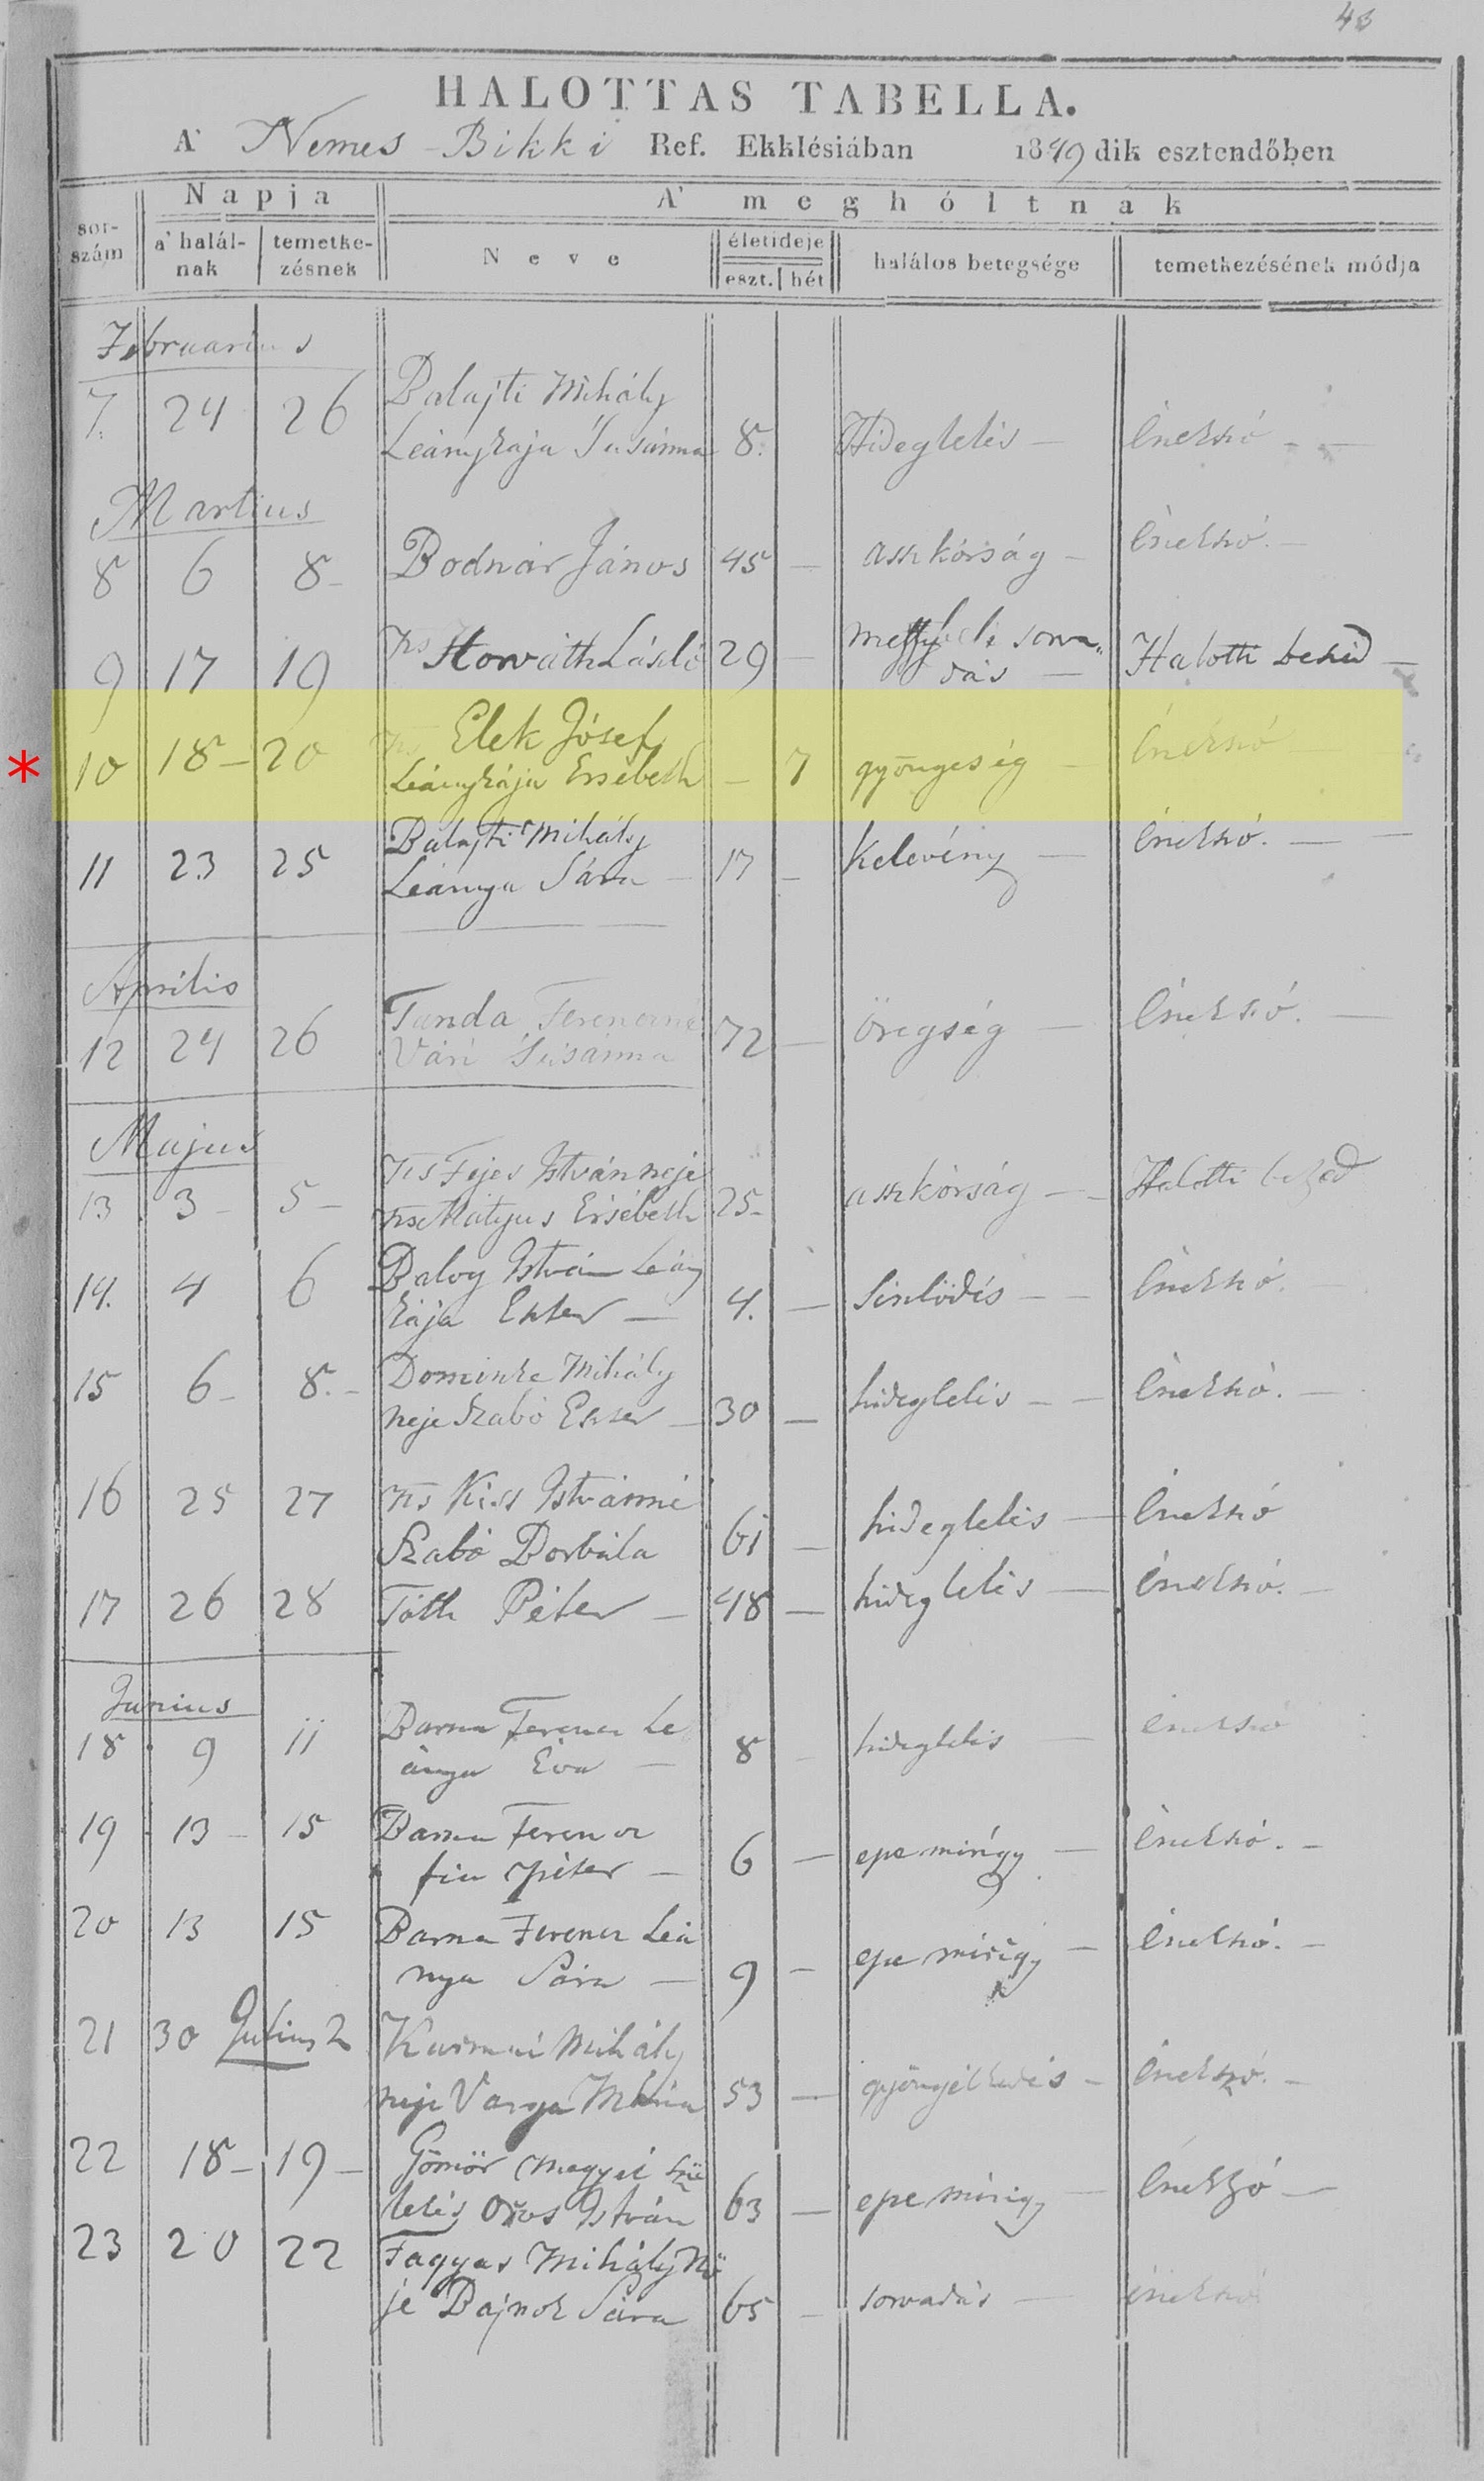 43
HALOTTAS TABELLA.
A' Nemes-Bikki Ref. Ekklésiában 1849 dik esztendőben
Napja A' meghóltnak
sor-szám a' halál-nak temetke-zésnek Neve életideje halálos betegsége temetkezésének módja
eszt. hét
Februarius
7. 24 26 Balajti Mihály
Leánykája Susánna 8. Hideglelés — Énekszó - -
Martius
8 6 8- Bodnár János 45 — aszkórság - Énekszó. -
9 17 19 Ns Horváth László 29 — mellybeli sorva„
dás — Halotti beszéd —
* 10 18 - 20 Ns Elek Jósef
Leánykája Ersébeth - 7 gyöngeség - Énekszó
11 23 25 Balajti Mihály
Leánya Sára - 17 - Kelevény — énekszó. —
Aprilis
12 24 26 Tanda Ferencné
Vári Susánna 72 — öregség — Énekszó. —
Majus
13 3 - 5 - Ns Fejes István neje
Ns Mátyus Ersébeth 25- aszkórság - - Halotti beszéd
14. 4 6 Balog István Leány
kája Eszter — 4. — Sinlődés - - Énekszó.
15 6 - 8. - Dominke Mihály
neje Szabó Eszter - 30 — hideglelés - - Énekszó. -
16 25 27 Ns Kiss Istvánné
Szabó Borbála 61 — hideglelés — Énekszó
17 26 28 Tóth Péter - 48 — hideglelés — énekszó. -
Junius
18 9 11 Barna Ferencz Le
ánya Éva — 8 - hideglelés — énekszó
19 13 - 15 Barna Ferencz
fia Péter - 6 — epe mirígy — Énekszó. -
20 13 15 Barna Ferencz Leá
nya Sára — 9 - epe mirigy - énekszó. -
21 30 Julius 2 Mihály
neje Varga Mária 53 — - énekszó. -
22 18 - 19 - Gömör megyei szü
letés Oros István 63 — epe mirigy - énekszó —
23 20 22 Fagyas Mihály Nő
je Bajnok Sára 65 - sorvadás — énekszó